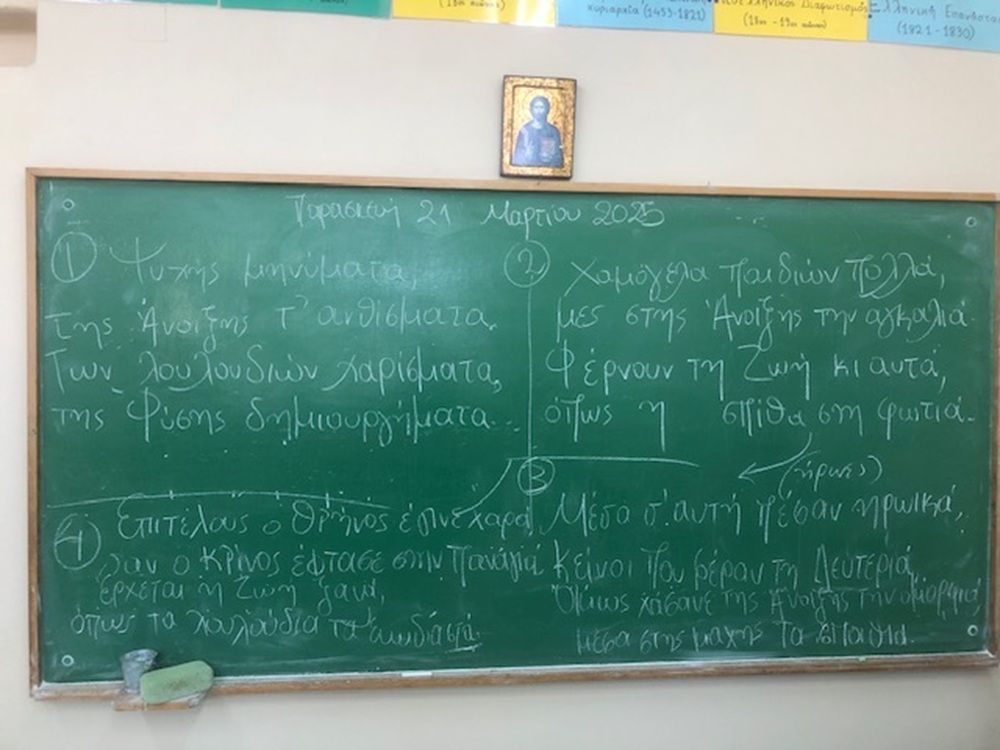 κυριαρχία (1453-1821)
Νεοελληνικός Διαφωτισμός
(18ος - 19ος αιώνας)
Ελληνική Επανάστα
(1821 - 1830)
(18ος αιώνας)
Παρασκευή 21 Μαρτίου 2025
① Ψυχής μηνύματα,
της Άνοιξης τ' ανθίσματα.
Των λουλουδιών χαρίσματα,
της Φύσης δημιουργήματα...
② Χαμόγελα παιδιών πολλά,
μες στης Άνοιξης την αγκαλιά.
Φέρνουν τη Ζωή κι αυτά,
όπως η σπίθα στη φωτιά.
(ήρωες)
③
Μέσα σ' αυτή πέσαν ηρωικά,
κείνοι που φέραν τη Λευτεριά
Όμως χάσανε της Άνοιξης την ομορφιά,
μέσα στης μάχης τα σπαθιά.
④ Επιτέλους ο θρήνος έγινε χαρά
σαν ο κρίνος έφτασε στην Παναγιά
Έρχεται η Ζωή ξανά,
όπως τα λουλούδια τα ευωδιαστά.